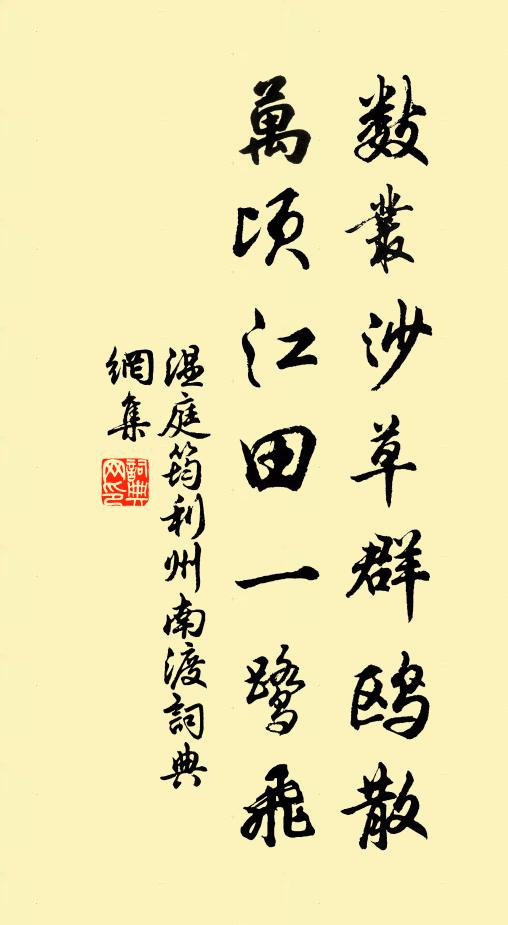 數叢沙草群鸥散
萬頃江田一鹭飛
温庭筠利州南渡詞典
網集
詞典
网印